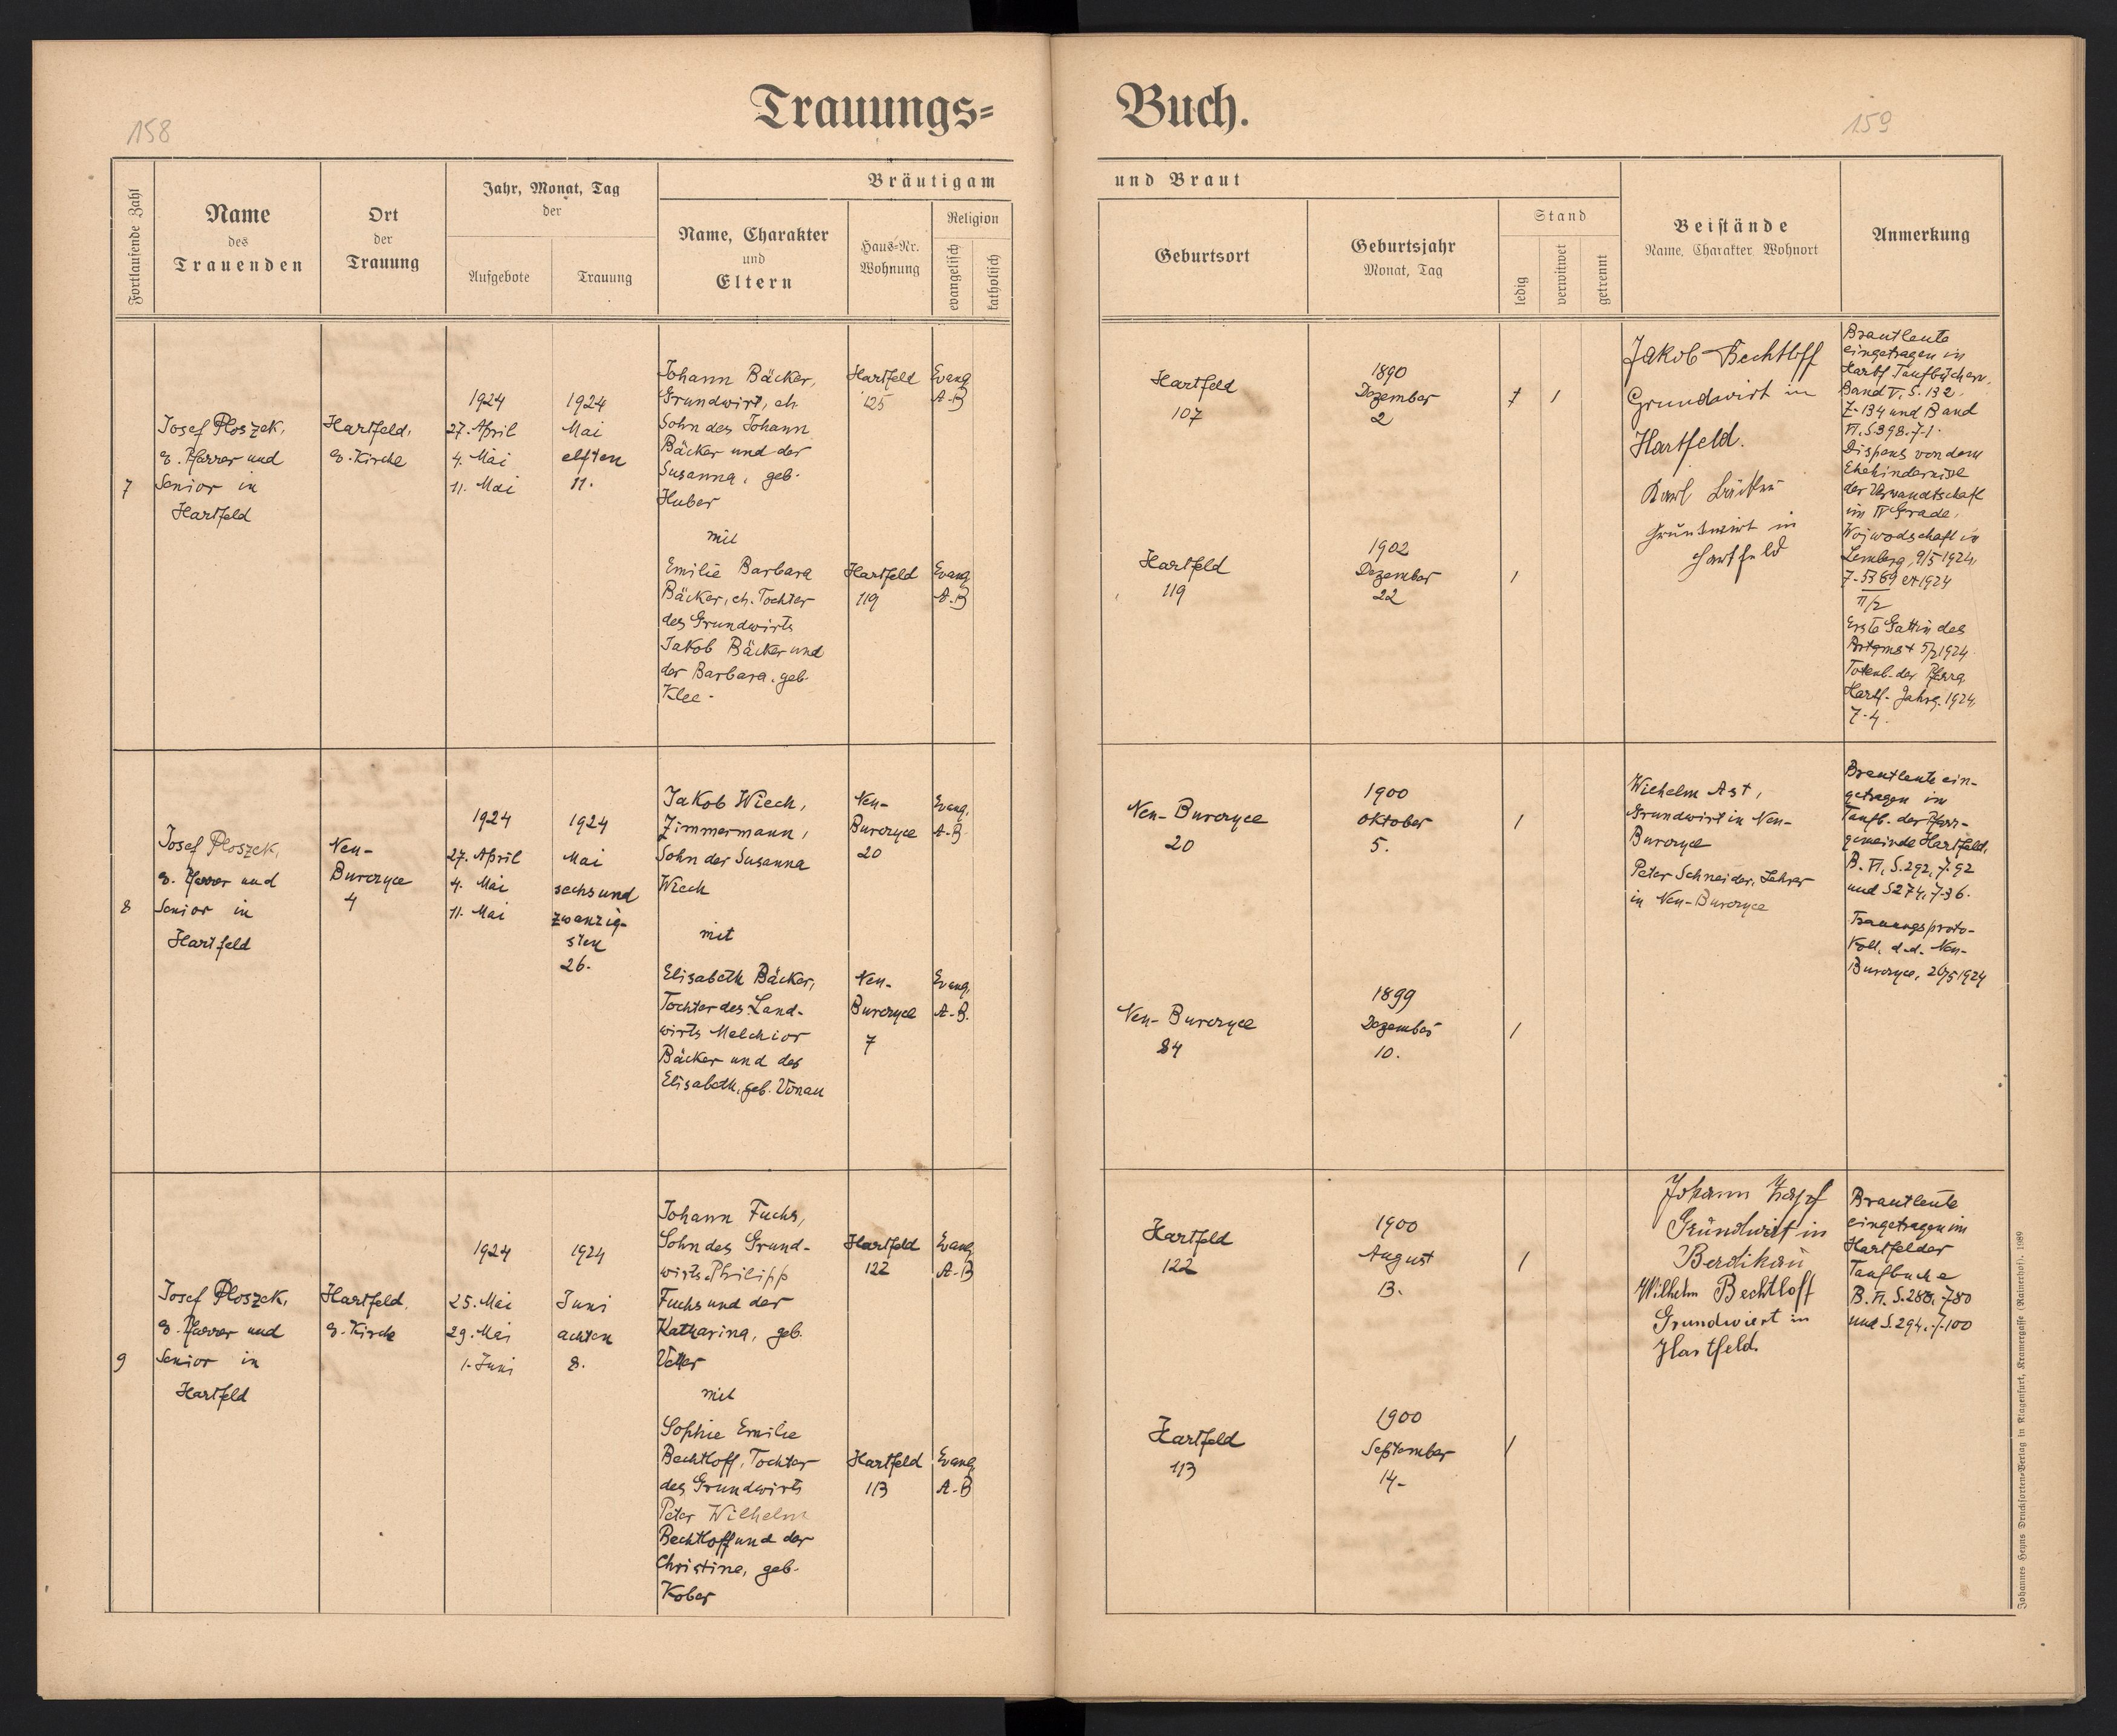 158
Trauungs=
Buch.
159
Fortlaufende Zahl
Name
des
Trauenden
Ort
der
Trauung
Jahr, Monat, Tag
der
Aufgebote
Trauung
Bräutigam
Name, Charakter
und
Eltern
Haus-Nr.
Wohnung
Religion
evangelisch
katholisch
und Braut
Geburtsort
Geburtsjahr
Monat, Tag
Stand
ledig
verwitwet
getrennt
Beistände
Name, Charakter, Wohnort
Anmerkung
7
Josef Ploszek,
e. Pfarrer und
Senior in
Hartfeld
Hartfeld,
e. Kirche
1924
27. April
4. Mai
11. Mai
1924
Mai
elften
11.
Johann Bäcker,
Grundwirt, eh.
Sohn des Johann
Bäcker und der
Susanna, geb.
Huber
mit
Emilie Barbara
Bäcker, eh. Tochter
des Grundwirts
Jakob Bäcker und
der Barbara, geb.
Klee
Hartfeld
125
Evang.
A.B
Hartfeld
119
Evang.
A.B
Hartfeld
107
1890
Dezember
2
1
Hartfeld
119
1902
Dezember
22
1
Jakob Bechtloff
Grundwirt in
Hartfeld.
Karl Bäcker
Grundwirt in
Hartfeld
Brautleute
eingetragen in
Hartf. Taufbüchern,
Band V. S. 132.
Z-134 und Band
VI. S. 398. Z-1.
Dispens von dem
Ehehindernisse
der Verwandtschaft
im IV Grade,
Wojwodschaft in
Lemberg, 9/5 1924,
Z-5369 ex 1924
Erste Gattin des
Totenb. der Pfarrg.
Hartf. Jahrg. 1924,
Z-4.
8
Josef Ploszek,
e. Pfarrer und
Senior in
Hartfeld
Neu-
Burczyce
4
1924
27. April
4. Mai
11. Mai
1924
Mai
sechsund
zwanzig-
sten
26.
Jakob Wiech,
Zimmermann,
Sohn der Susanna
Wiech
mit
Elisabeth Bäcker,
Tochter des Land-
wirts Melchior
Bäcker und der
Elisabeth, geb. Vonau
Neu-
Burczyce
20
Evang.
A.B.
Neu-
Burczyce
7
Evang.
A.B.
Neu-Burczyce
20
1900
Oktober
5.
1
Neu-Burczyce
84
1899
Dezember
10.
1
Wilhelm Ast,
Grundwirt in Neu-
Burczyce
Peter Schneider, Lehrer
in Neu-Burczyce
Brautleute ein-
getragen im
Taufb. der Pfarr-
gemeinde Hartfeld.
B. VI, S. 292, Z-92
und S 274, Z-36.
Trauungsproto-
koll, d.d. Neu-
Burczyce, 26/5 1924
9
Josef Ploszek,
e. Pfarrer und
Senior in
Hartfeld
Hartfeld,
e. Kirche
1924
25. Mai
29. Mai
1. Juni
1924
Juni
achten
8.
Johann Fuchs,
Sohn des Grund-
wirts Philipp
Fuchs und der
Katharina, geb.
Vetter
mit
Sophie Emilie
Bechtloff, Tochter
des Grundwirts
Peter Wilhelm
Bechtloff und der
Christine, geb.
Kober
Hartfeld
122
Evang.
A.B
Hartfeld
113
Evang.
A.B
Hartfeld
122
1900
August
13.
1
Hartfeld
113
1900
September
14-
1
Johann Zapf
Grundwirt in
Berdikau
Wilhelm Bechtloff
Grundwirt in
Hartfeld.
Brautleute
eingetragen im
Hartfelder
Taufbuche
B. VI. S. 288, Z-80
und S. 294, Z-100
Johannes Heyns Drucksorten-Verlag in Klagenfurt, Kramergasse (Rainerhof). 1989